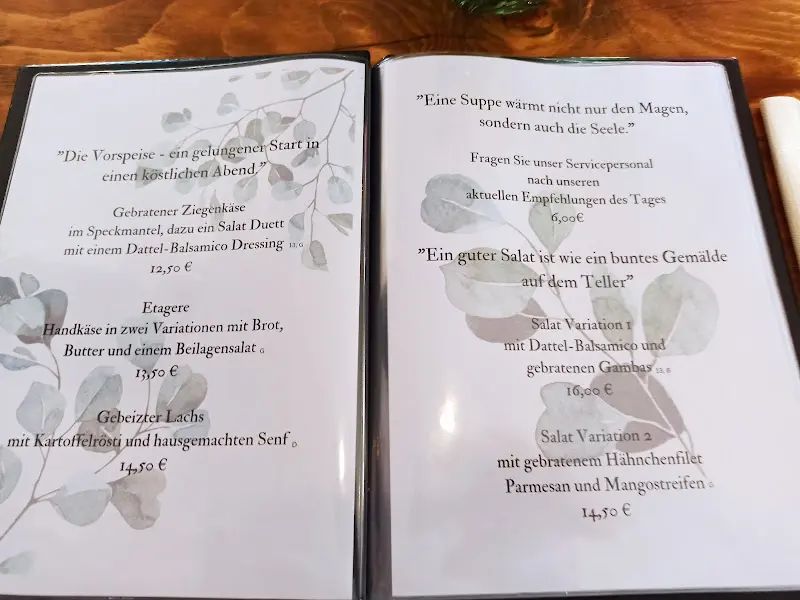 "Die Vorspeise - ein gelungener Start in
einen köstlichen Abend."
Gebratener Ziegenkäse
im Speckmantel, dazu ein Salat Duett
mit einem Dattel-Balsamico Dressing 13, G
12,50 €
Etagere
Handkäse in zwei Variationen mit Brot,
Butter und einem Beilagensalat G
13,50 €
Gebeizter Lachs
mit Kartoffelrösti und hausgemachten Senf D
14,50 €
"Eine Suppe wärmt nicht nur den Magen,
sondern auch die Seele."
Fragen Sie unser Servicepersonal
nach unseren
aktuellen Empfehlungen des Tages
6,00€
"Ein guter Salat ist wie ein buntes Gemälde
auf dem Teller"
Salat Variation 1
mit Dattel-Balsamico und
gebratenen Gambas
16,00 €
Salat Variation 2
mit gebratenem Hähnchenfilet
Parmesan und Mangostreifen
14,50 €